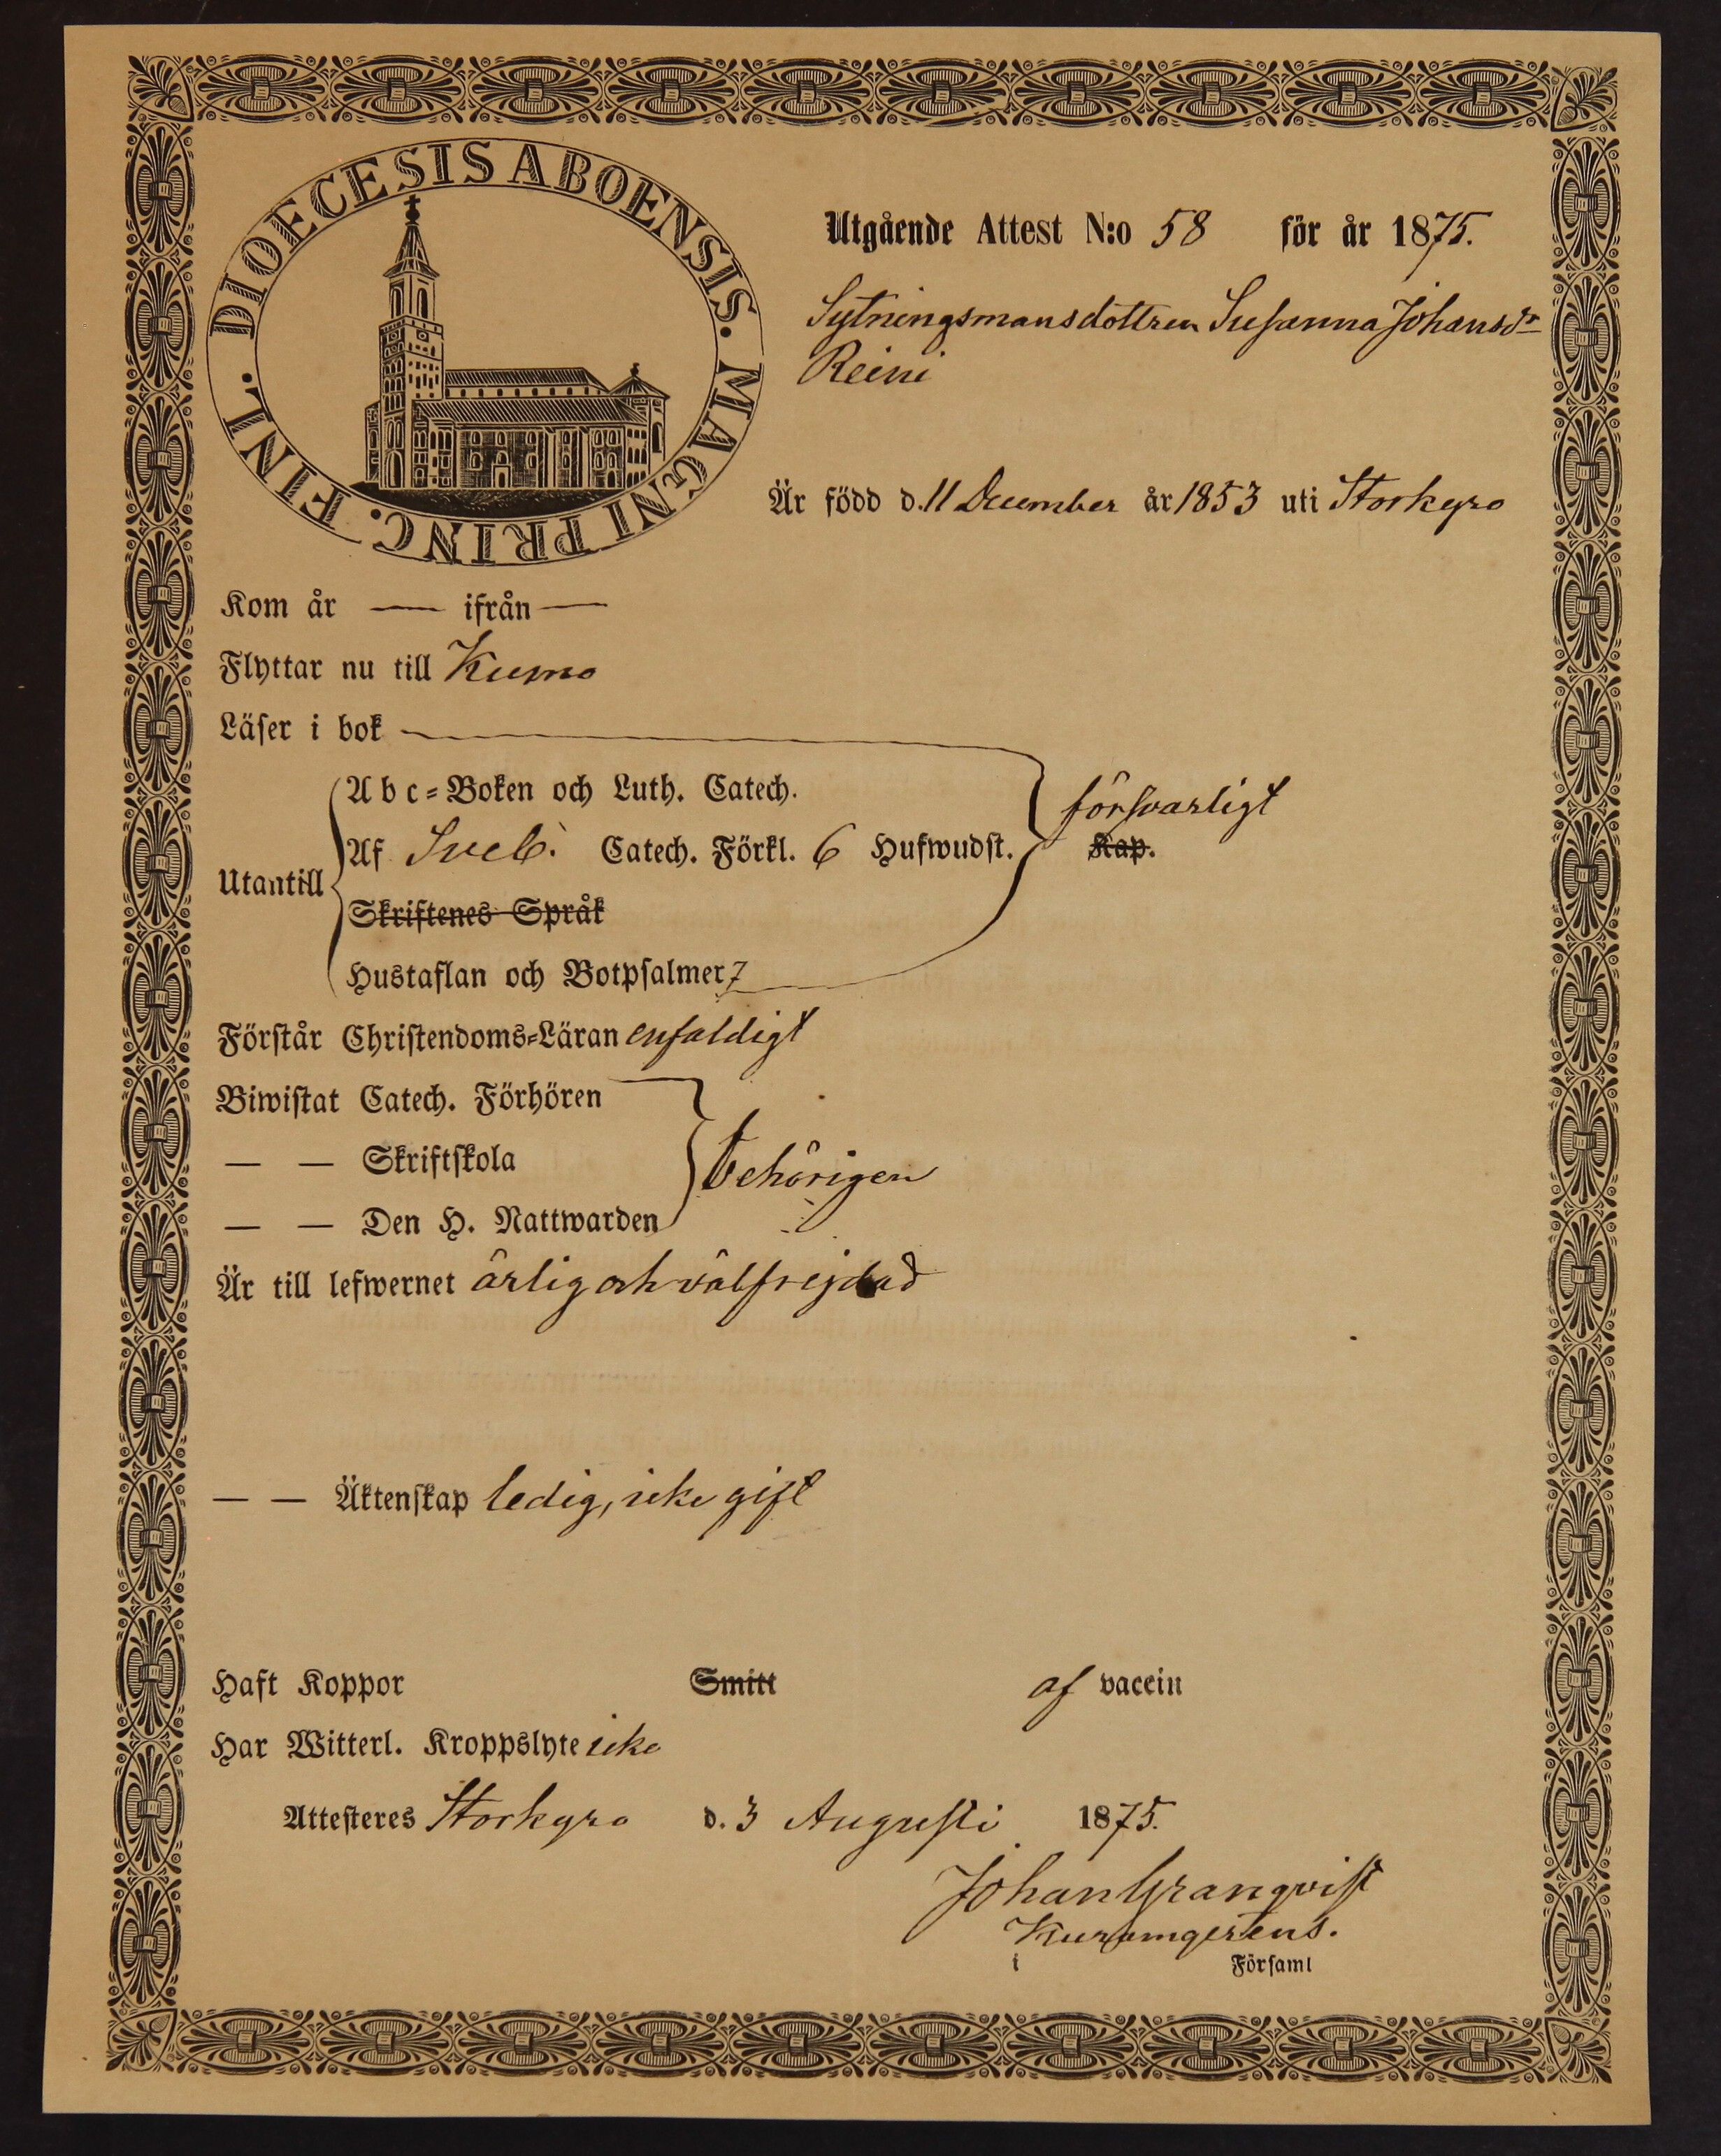 DIOECESIS ABOENSIS. MAGNI PRINC. FINL.
Utgående Attest N:o 58 för år 1875.
Sytningsmansdottren Susanna Johansdr
Reini
Är född d. 11 December år 1853 uti Storkyro
Kom år — ifrån —
Flyttar nu till Kumo
Läser i bok
Abc=Boken och Luth. Catech. försvarligt
Utantill Af Sveb. Catech. Förkl. 6 Hufwudst. Kap.
Skriftenes Språk
Hustaflan och Botpsalmer 7
Förstår Christendoms=Läran enfaldigt
Biwistat Catech. Förhören
— — Skriftskola behörigen
— — Den H. Nattwarden
Är till lefwernet ärlig och välfrejdad
— — Äktenskap ledig, icke gift
Haft Koppor Smitt af vaccin
Har Witterl. Kroppslyte icke
Attesteres Storkyro d. 3 Augusti 1875.
Johan Granqvist
i Församl